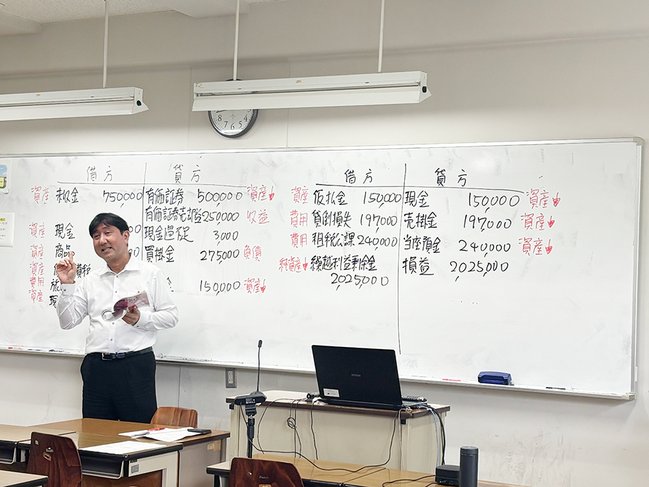 借方 貸方
資産 未収金 750,000 有価証券 500,000 資産↓
有価証券売却益 250,000 収益
資産 現金 現金過不足 3,000
資産 商品 買掛金 275,000 負債
資産
費用 150,000 資産↓
資産
借方 貸方
資産 仮払金 150,000 現金 150,000 資産↓
費用 貸倒損失 197,000 売掛金 197,000 資産↓
費用 租税公課 240,000 当座預金 240,000 資産↓
純資産↓ 繰越利益剰余金 損益 2,025,000
2025,000